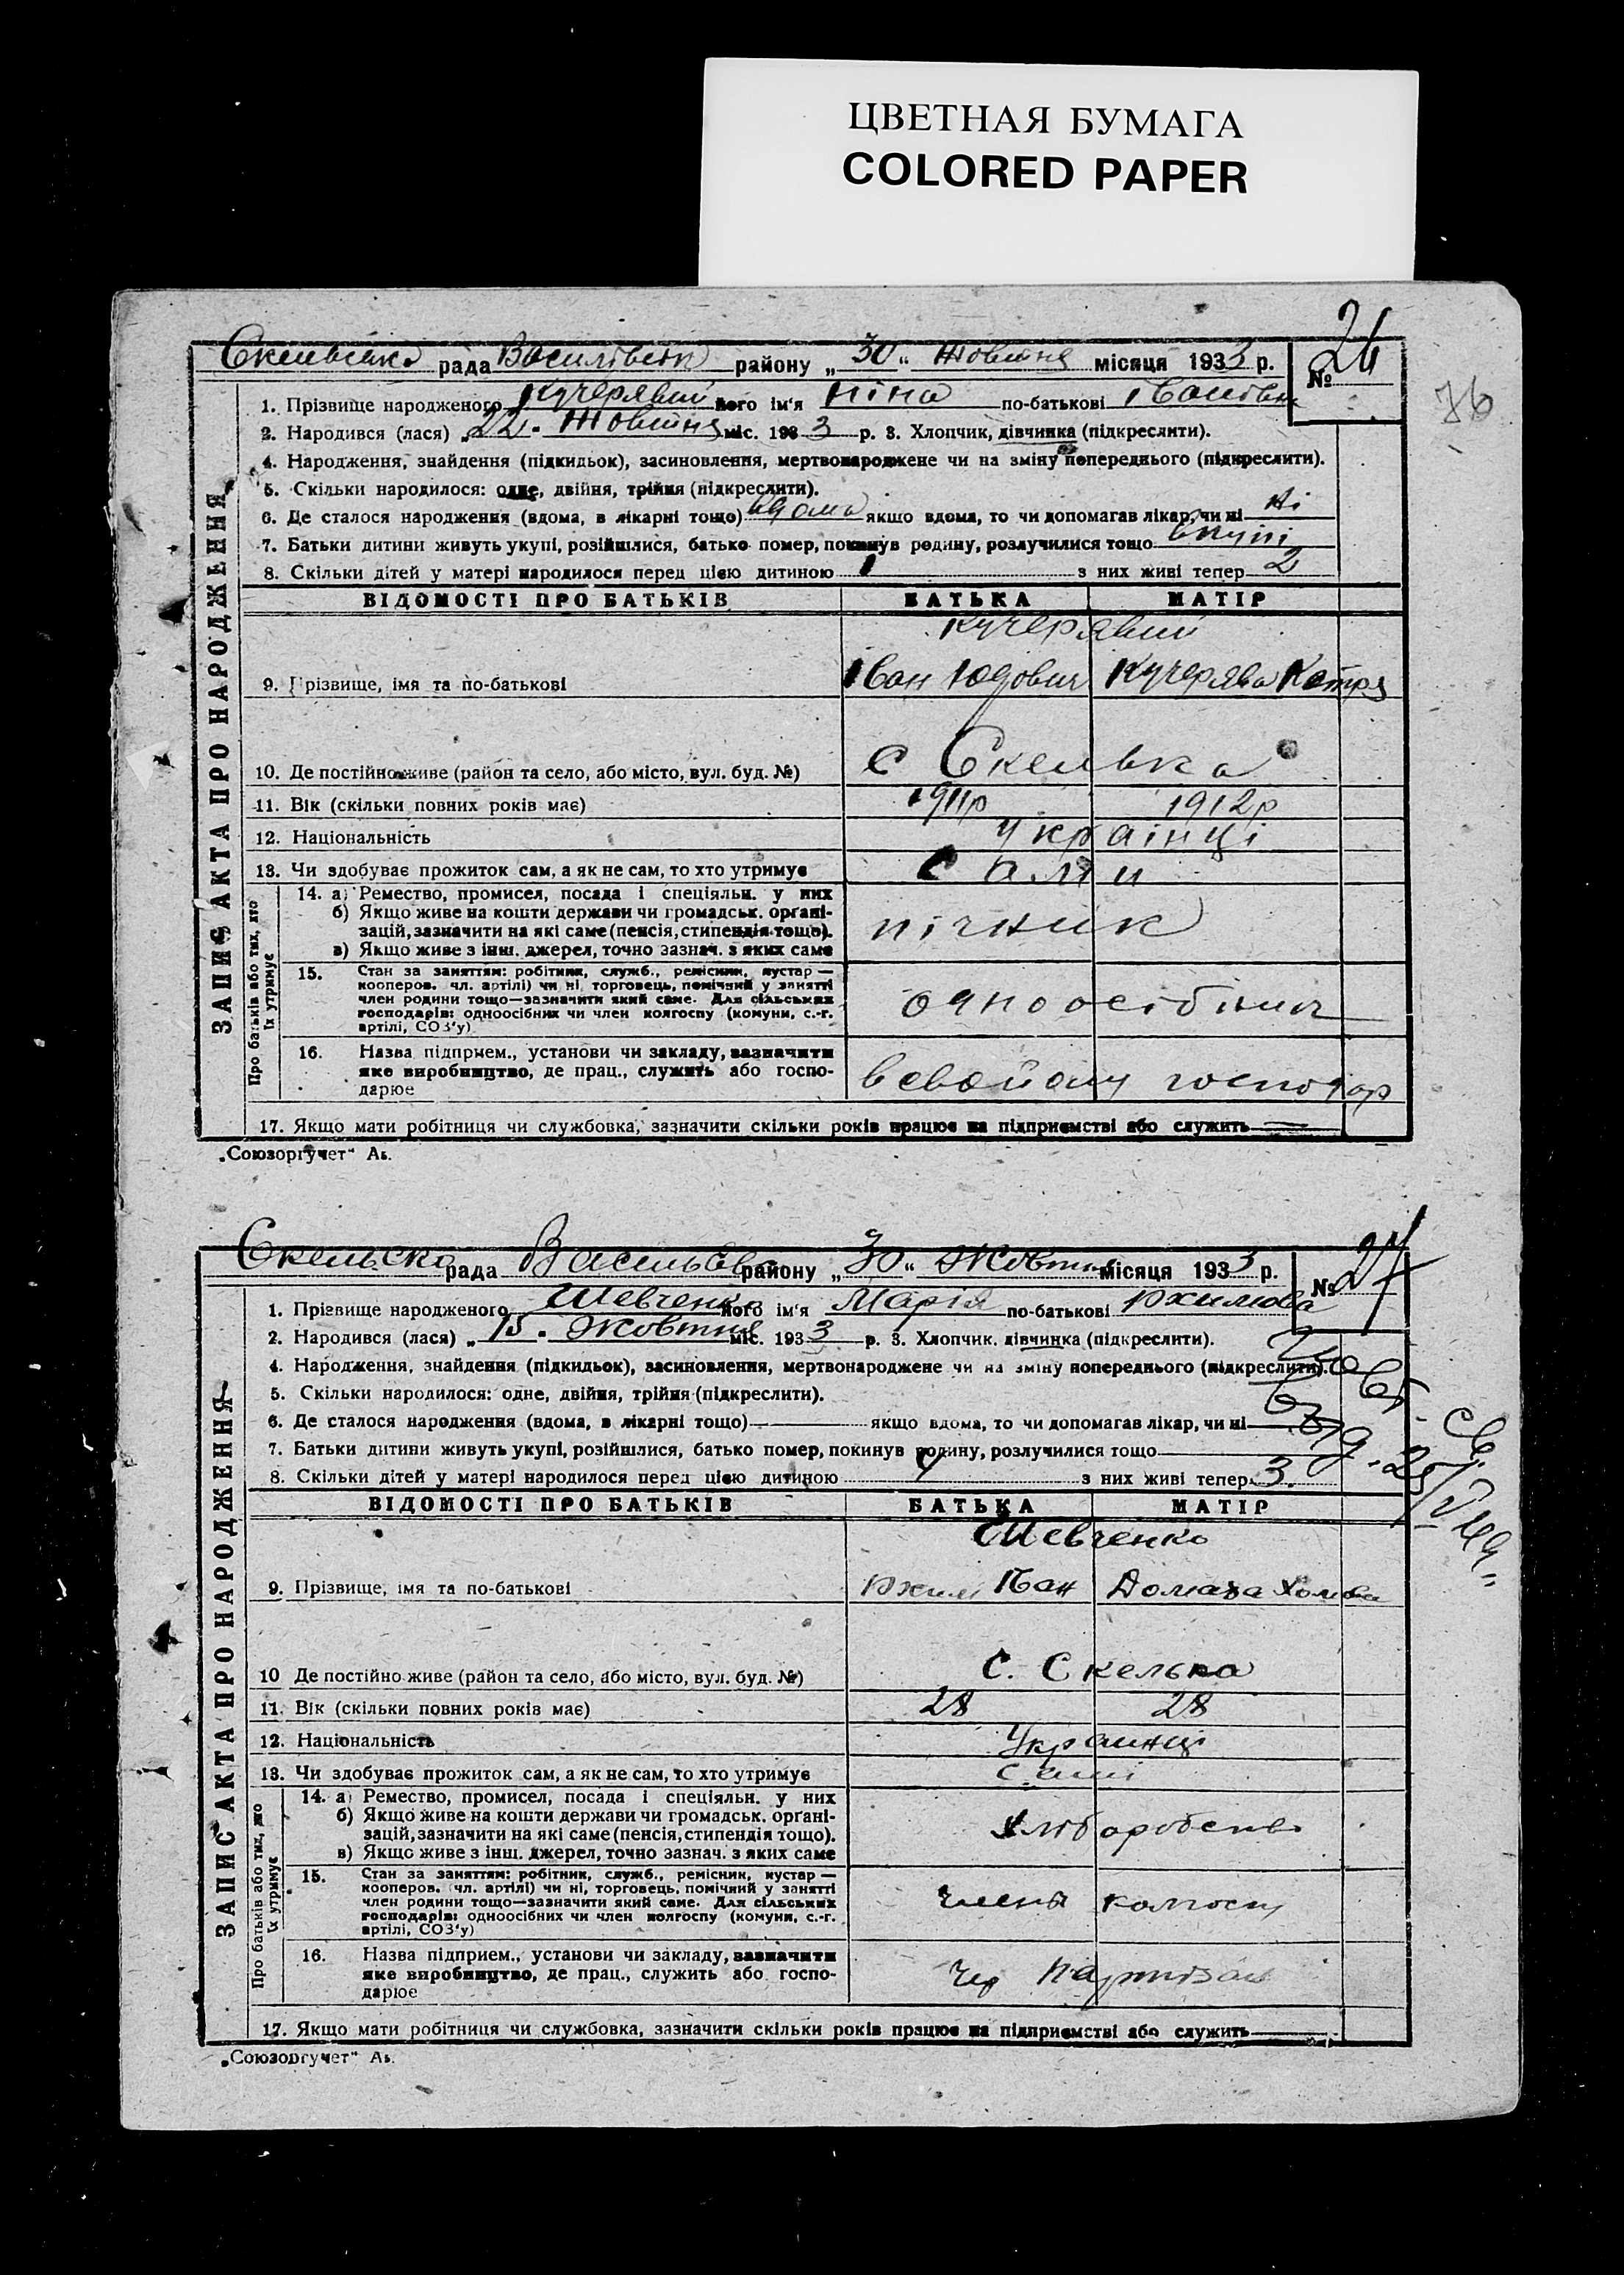 ЦВЕТНАЯ БУМАГА
COLORED PAPER
76
ЗАПИС АКТА ПРО НАРОДЖЕННЯ
Скельська рада району „30“ Жовтня місяця 1933 р. № 26
1. Прізвище народженого Кучерявий його ім'я Ніна по-батькові
2. Народився (лася) „22„ Жовтня міс. 1933 р. 3. Хлопчик, дівчинка (підкреслити).
4. Народження, знайдення (підкидьок), засиновлення, мертвонароджене чи на зміну попереднього (підкреслити).
5. Скільки народилося: одне, двійня, трійня (підкреслити).
6. Де сталося народження (вдома, в лікарні тощо) вдома якщо вдома, то чи допомагав лікар, чи ні ні
7. Батьки дитини живуть укупі, розійшлися, батько помер, покинув родину, розлучилися тощо вкупі
8. Скільки дітей у матері народилося перед цією дитиною 1 з них живі тепер 2
ВІДОМОСТІ ПРО БАТЬКІВ БАТЬКА МАТІР
Кучерявий
9. Прізвище, імя та по-батькові Іван Юдович Кучерява Катря
10. Де постійно живе (район та село, або місто, вул. буд. №) с Скелька
11. Вік (скільки повних років має) 1911р 1912р
12. Національність українці
13. Чи здобуває прожиток сам, а як не сам, то хто утримує сами
Про батьків або тих, хто їх утримує
14. а) Ремество, промисел, посада і спеціяльн. у них
б) Якщо живе на кошти держави чи громадськ. органі-
зацій, зазначити на які саме (пенсія, стипендія тощо). пічник
в) Якщо живе з інш. джерел, точно зазнач. з яких саме
15. Стан за заняттям: робітник, служб., ремісник, кустар —
кооперов. чл. артілі) чи ні, торговець, помічний у занятті
член родини тощо—зазначити який саме. Для сільських одноосібник
господарів: одноосібних чи член колгоспу (комуни, с.-г.
артілі, СОЗ'у)
16. Назва підприєм., установи чи закладу, зазначити
яке виробництво, де прац., служить або госпо- господар
дарює
17. Якщо мати робітниця чи службовка, зазначити скільки років працює на підприємстві або служить
„Союзоргучет“ Аь.
ЗАПИС АКТА ПРО НАРОДЖЕННЯ
Скельска рада району „30“ Жовтня місяця 1933 р. № 27
1. Прізвище народженого Шевченко його ім'я Марія по-батькові
2. Народився (лася) „15„ Жовтня міс. 1933 р. 3. Хлопчик, дівчинка (підкреслити).
4. Народження, знайдення (підкидьок), засиновлення, мертвонароджене чи на зміну попереднього (підкреслити).
5. Скільки народилося: одне, двійня, трійня (підкреслити).
6. Де сталося народження (вдома, в лікарні тощо) якщо вдома, то чи допомагав лікар, чи ні
7. Батьки дитини живуть укупі, розійшлися, батько помер, покинув родину, розлучилися тощо
8. Скільки дітей у матері народилося перед цією дитиною 4 з них живі тепер 3.
ВІДОМОСТІ ПРО БАТЬКІВ БАТЬКА МАТІР
Шевченко
9. Прізвище, імя та по-батькові
10 Де постійно живе (район та село, або місто, вул. буд. №) С. Скелька
11. Вік (скільки повних років має) 28 28
12. Національність Українці
13. Чи здобуває прожиток сам, а як не сам, то хто утримує самі
Про батьків або тих, хто їх утримує
14. а) Ремество, промисел, посада і спеціяльн. у них
б) Якщо живе на кошти держави чи громадськ. органі-
зацій, зазначити на які саме (пенсія, стипендія тощо).
в) Якщо живе з інш. джерел, точно зазнач. з яких саме
15. Стан за заняттям: робітник, служб., ремісник, кустар —
кооперов. (чл. артілі) чи ні, торговець, помічний у занятті
член родини тощо—зазначити який саме. Для сільських
господарів: одноосібних чи член колгоспу (комуни, с.-г.
артілі, СОЗ'у)
16. Назва підприєм., установи чи закладу, зазначити
яке виробництво, де прац., служить або госпо- Чер Партизан
дарює
17. Якщо мати робітниця чи службовка, зазначити скільки років працює на підприємстві або служить
„Союзоргучет“ Аь.